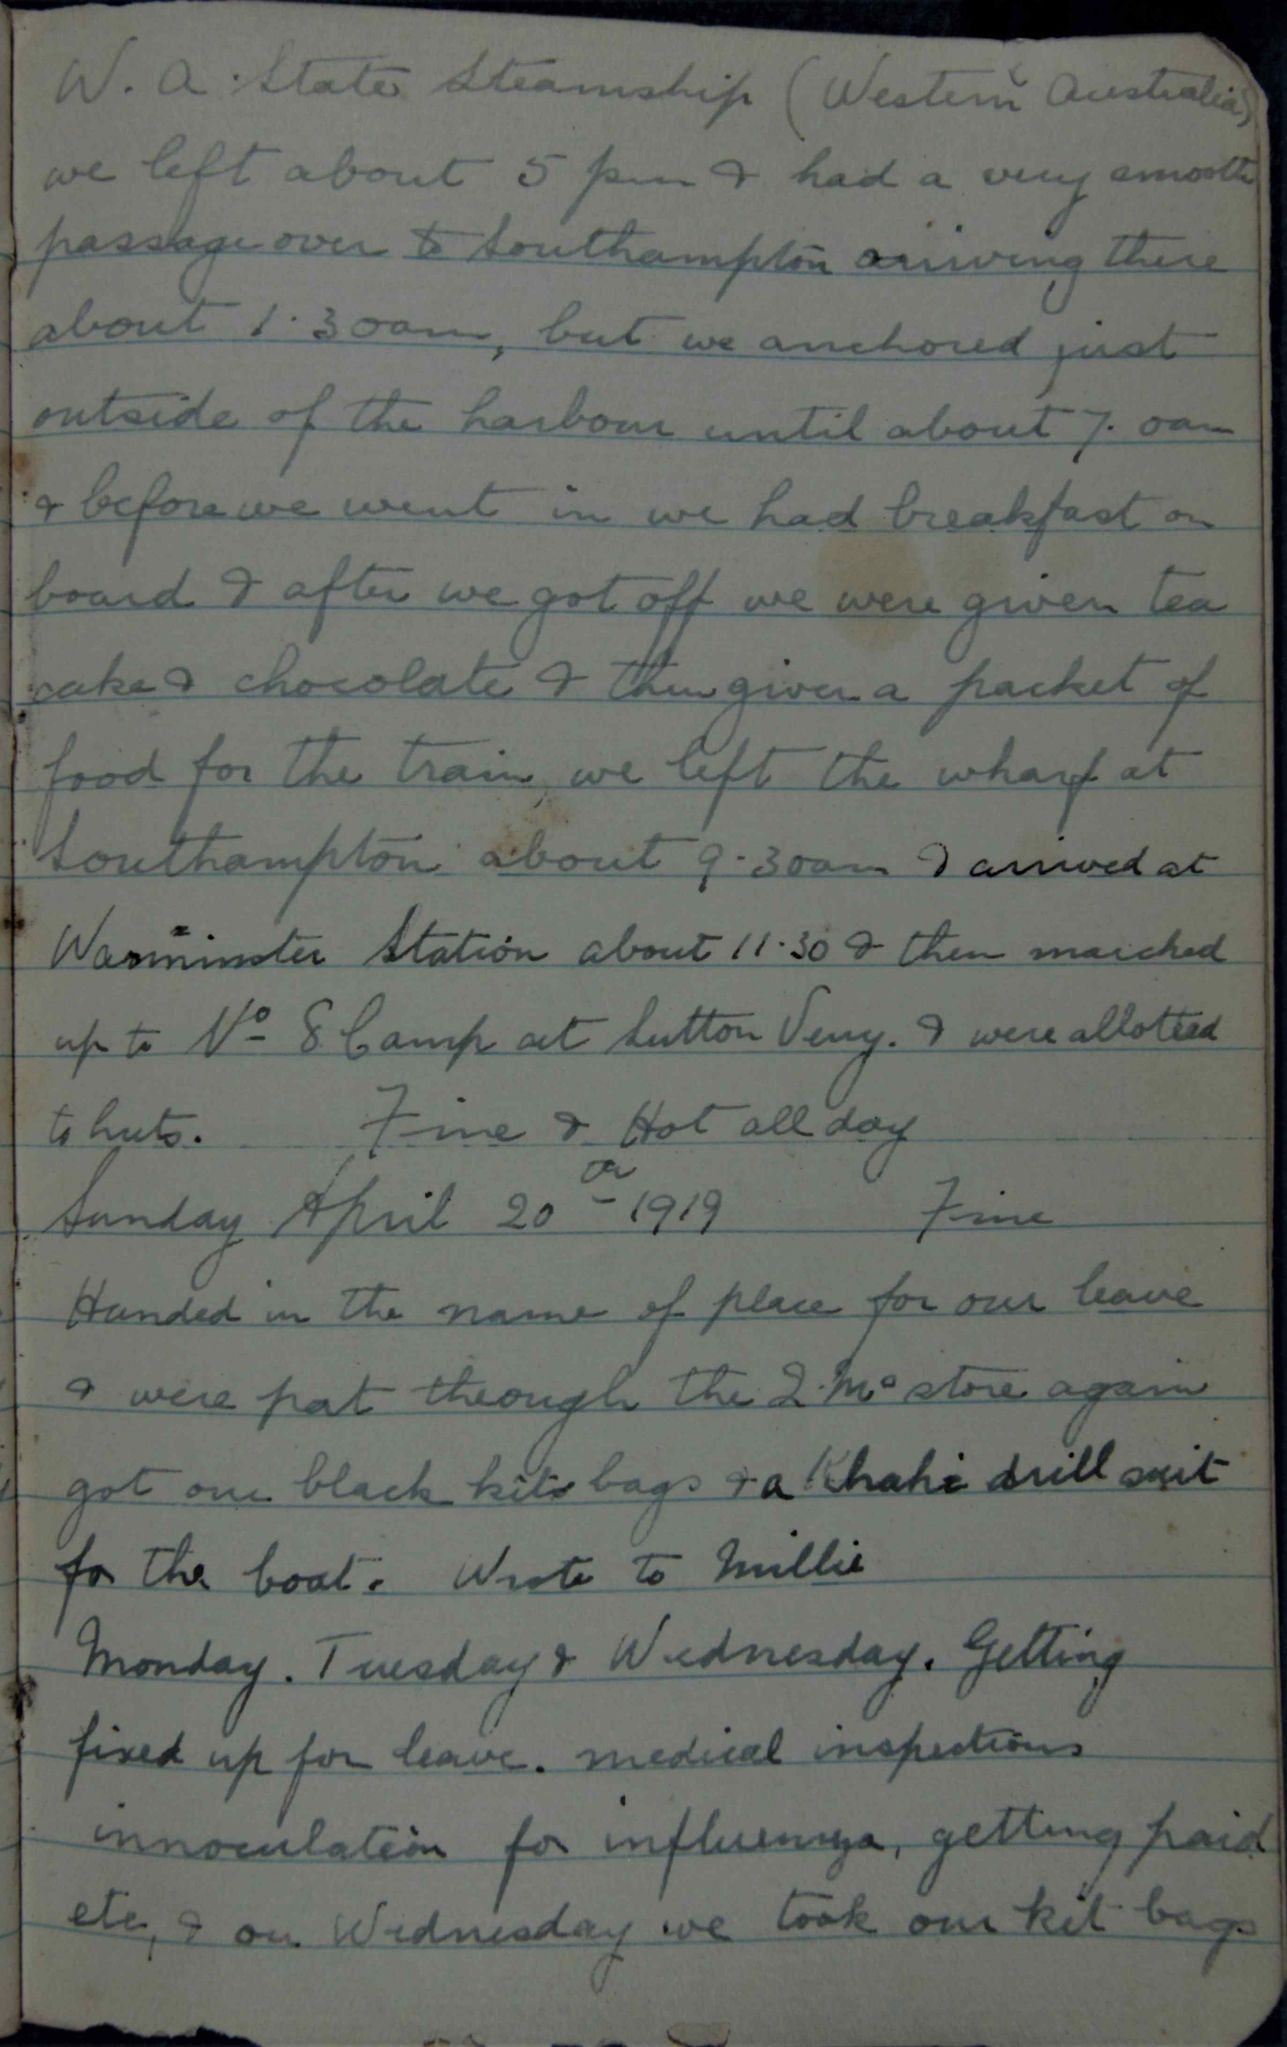 W. A. State Steamship (Western Australia)
we left about 5 pm & had a very smooth
passage over to Southampton arriving there
about 1.30am, but we anchored just
outside of the harbour until about 7.0am
& before we went in we had breakfast on
board & after we got off we were given tea
cake & chocolate & then given a packet of
food for the train, we left the wharf at
Southampton about 9.30am & arrived at
Warminster Station about 11.30 & then marched
up to No 8 Camp at Sutton Veny. & were allotted
to huts. Fine & Hot all day
Sunday April 20th 1919 Fine
Handed in the name of place for our leave
& were put through the Q.Ms store again
got our black kit bags & a Khaki drill suit
for the boat. Wrote to Millie
Monday. Tuesday & Wednesday. Getting
fixed up for leave. medical inspections
innoculation for influenza, getting paid
etc, & on Wednesday we took our kit bags